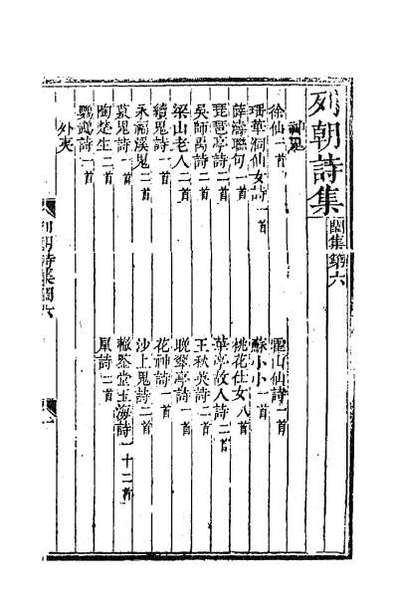 列朝詩集 閏集第六
神鬼
徐仙一首
霍山仙詩一首
璠華洞仙女詩一首
蘇小小一首
薛濤聯句一首
桃花仕女八首
琵琶亭詩二首
華亭故人詩二首
吳師禹詩二首
王秋英詩二首
梁山老人二首
晚翠亭詩一首
續鬼詩一首
花神詩一首
永福溪鬼二首
沙上鬼詩二首
裒鬼詩一首
堂玉海詩一十二首
陶楚生二首
鼠詩二首
鸚鵡詩一首
外夷
列朝詩集閏六